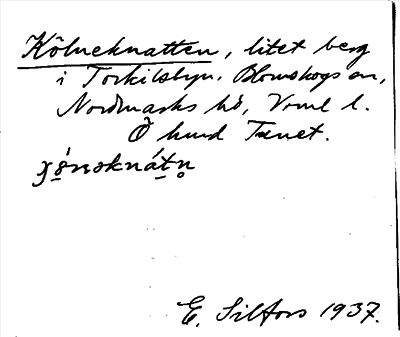 Kölneknatten, litet berg
i Torkilsbyn. Blomskogs sn,
Nordmarks hd, Vrml l.
Ö hund Tænet.
E. Silfors 1937.